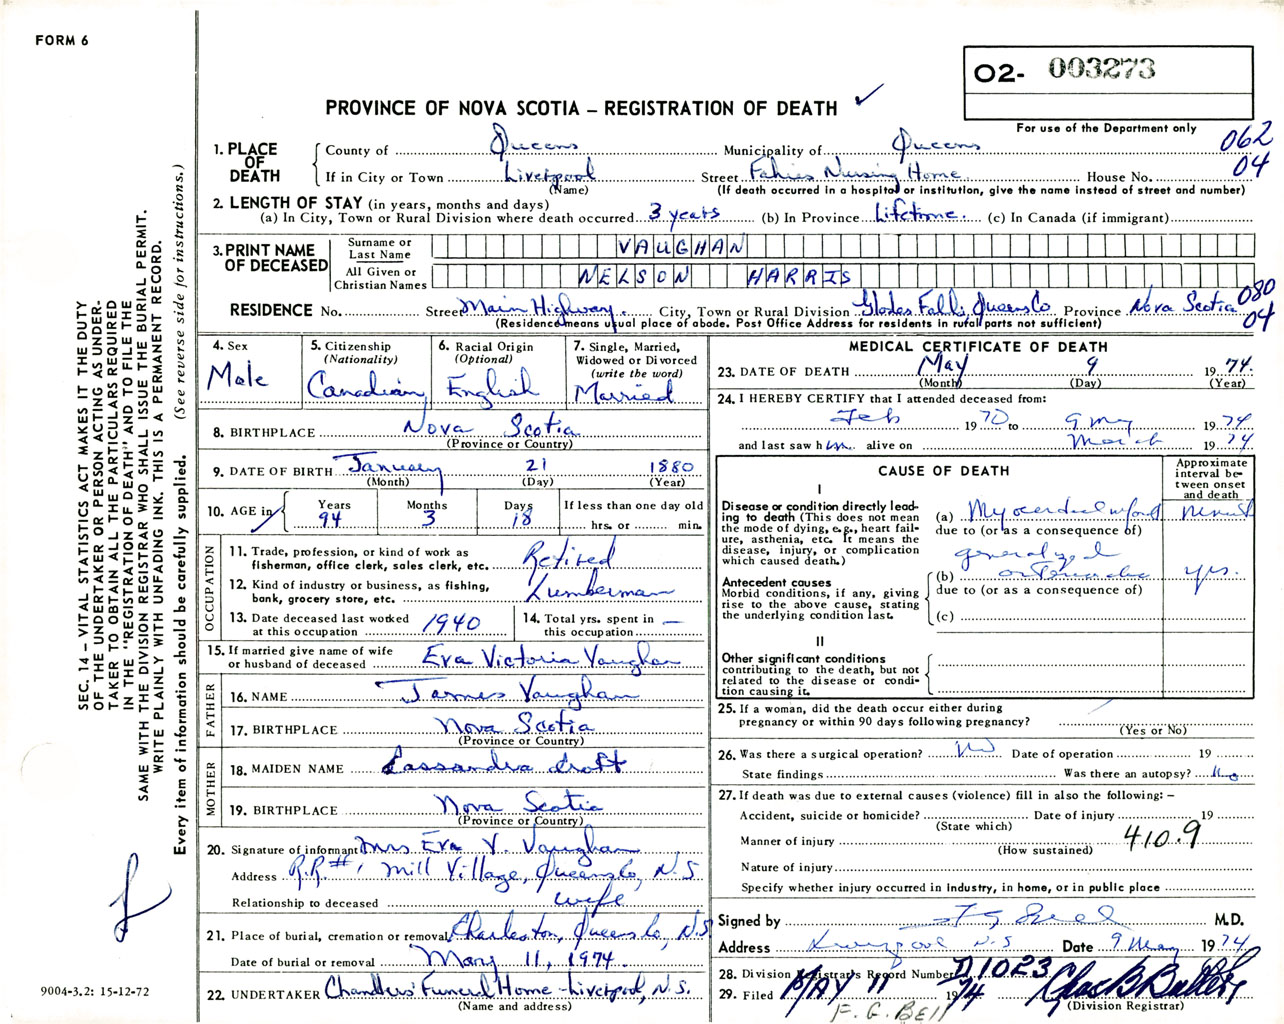 FORM 6
O2- 003273
PROVINCE OF NOVA SCOTIA – REGISTRATION OF DEATH ✓
For use of the Department only
062
04
1. PLACE OF DEATH
County of Queens Municipality of Queens
If in City or Town Liverpool Street Fahies Nursing Home House No.
(Name) (If death occurred in a hospital or institution, give the name instead of street and number)
2. LENGTH OF STAY (in years, months and days)
(a) In City, Town or Rural Division where death occurred 3 years (b) In Province Lifetime. (c) In Canada (if immigrant)
3. PRINT NAME OF DECEASED
Surname or Last Name VAUGHAN
All Given or Christian Names NELSON HARRIS
080
04
RESIDENCE No. Street Main Highway. City, Town or Rural Division Falls, Queens Co Province Nova Scotia
(Residence means usual place of abode. Post Office Address for residents in rural parts not sufficient)
4. Sex
Male
5. Citizenship
(Nationality)
Canadian
6. Racial Origin
(Optional)
English
7. Single, Married,
Widowed or Divorced
(write the word)
Married
8. BIRTHPLACE Nova Scotia
(Province or Country)
9. DATE OF BIRTH January 21 1880
(Month) (Day) (Year)
10. AGE in
Years Months Days If less than one day old
94 3 18 hrs. or min.
OCCUPATION
11. Trade, profession, or kind of work as
fisherman, office clerk, sales clerk, etc. Retired
12. Kind of industry or business, as fishing,
bank, grocery store, etc. Lumberman
13. Date deceased last worked
at this occupation 1940
14. Total yrs. spent in
this occupation —
15. If married give name of wife
or husband of deceased Eva Victoria Vaughan
FATHER
16. NAME James Vaughan
17. BIRTHPLACE Nova Scotia
(Province or Country)
MOTHER
18. MAIDEN NAME Cassandra Croft
19. BIRTHPLACE Nova Scotia
(Province or Country)
20. Signature of informant Mrs Eva V. Vaughan
Address R.R.#1 Mill Village, Queens Co, N.S
Relationship to deceased wife
21. Place of burial, cremation or removal Charleston, Queens Co, N.S
Date of burial or removal May 11, 1974.
22. UNDERTAKER Chandlers' Funeral Home - Liverpool, N.S.
(Name and address)
MEDICAL CERTIFICATE OF DEATH
23. DATE OF DEATH May 9 1974.
(Month) (Day) (Year)
24. I HEREBY CERTIFY that I attended deceased from:
Feb 1970 to 9 May 1974
and last saw him alive on March 1974
CAUSE OF DEATH
Approximate
interval be-
tween onset
and death
I
Disease or condition directly lead-
ing to death (This does not mean
the mode of dying, e.g., heart fail-
ure, asthenia, etc. It means the
disease, injury, or complication
which caused death.)
(a) Myocardial infarct
due to (or as a consequence of)
generalized
Antecedent causes
Morbid conditions, if any, giving
rise to the above cause, stating
the underlying condition last.
(b) yrs.
due to (or as a consequence of)
(c)
II
Other significant conditions
contributing to the death, but not
related to the disease or condi-
tion causing it.
25. If a woman, did the death occur either during
pregnancy or within 90 days following pregnancy?
(Yes or No)
26. Was there a surgical operation? No Date of operation 19
State findings Was there an autopsy? No
27. If death was due to external causes (violence) fill in also the following: –
Accident, suicide or homicide? Date of injury 19
(State which)
Manner of injury 410.9
(How sustained)
Nature of injury
Specify whether injury occurred in industry, in home, or in public place
Signed by M.D.
Address Liverpool N.S Date 9 May 1974
28. Division Registrar's Record Number D1023
29. Filed MAY 11 1974
(Division Registrar)
F. G. BELL
SEC. 14 – VITAL STATISTICS ACT MAKES IT THE DUTY
OF THE UNDERTAKER OR PERSON ACTING AS UNDER-
TAKER TO OBTAIN ALL THE PARTICULARS REQUIRED
IN THE "REGISTRATION OF DEATH" AND TO FILE THE
SAME WITH THE DIVISION REGISTRAR WHO SHALL ISSUE THE BURIAL PERMIT.
WRITE PLAINLY WITH UNFADING INK. THIS IS A PERMANENT RECORD.
Every item of information should be carefully supplied. (See reverse side for instructions.)
9004-3.2: 15-12-72